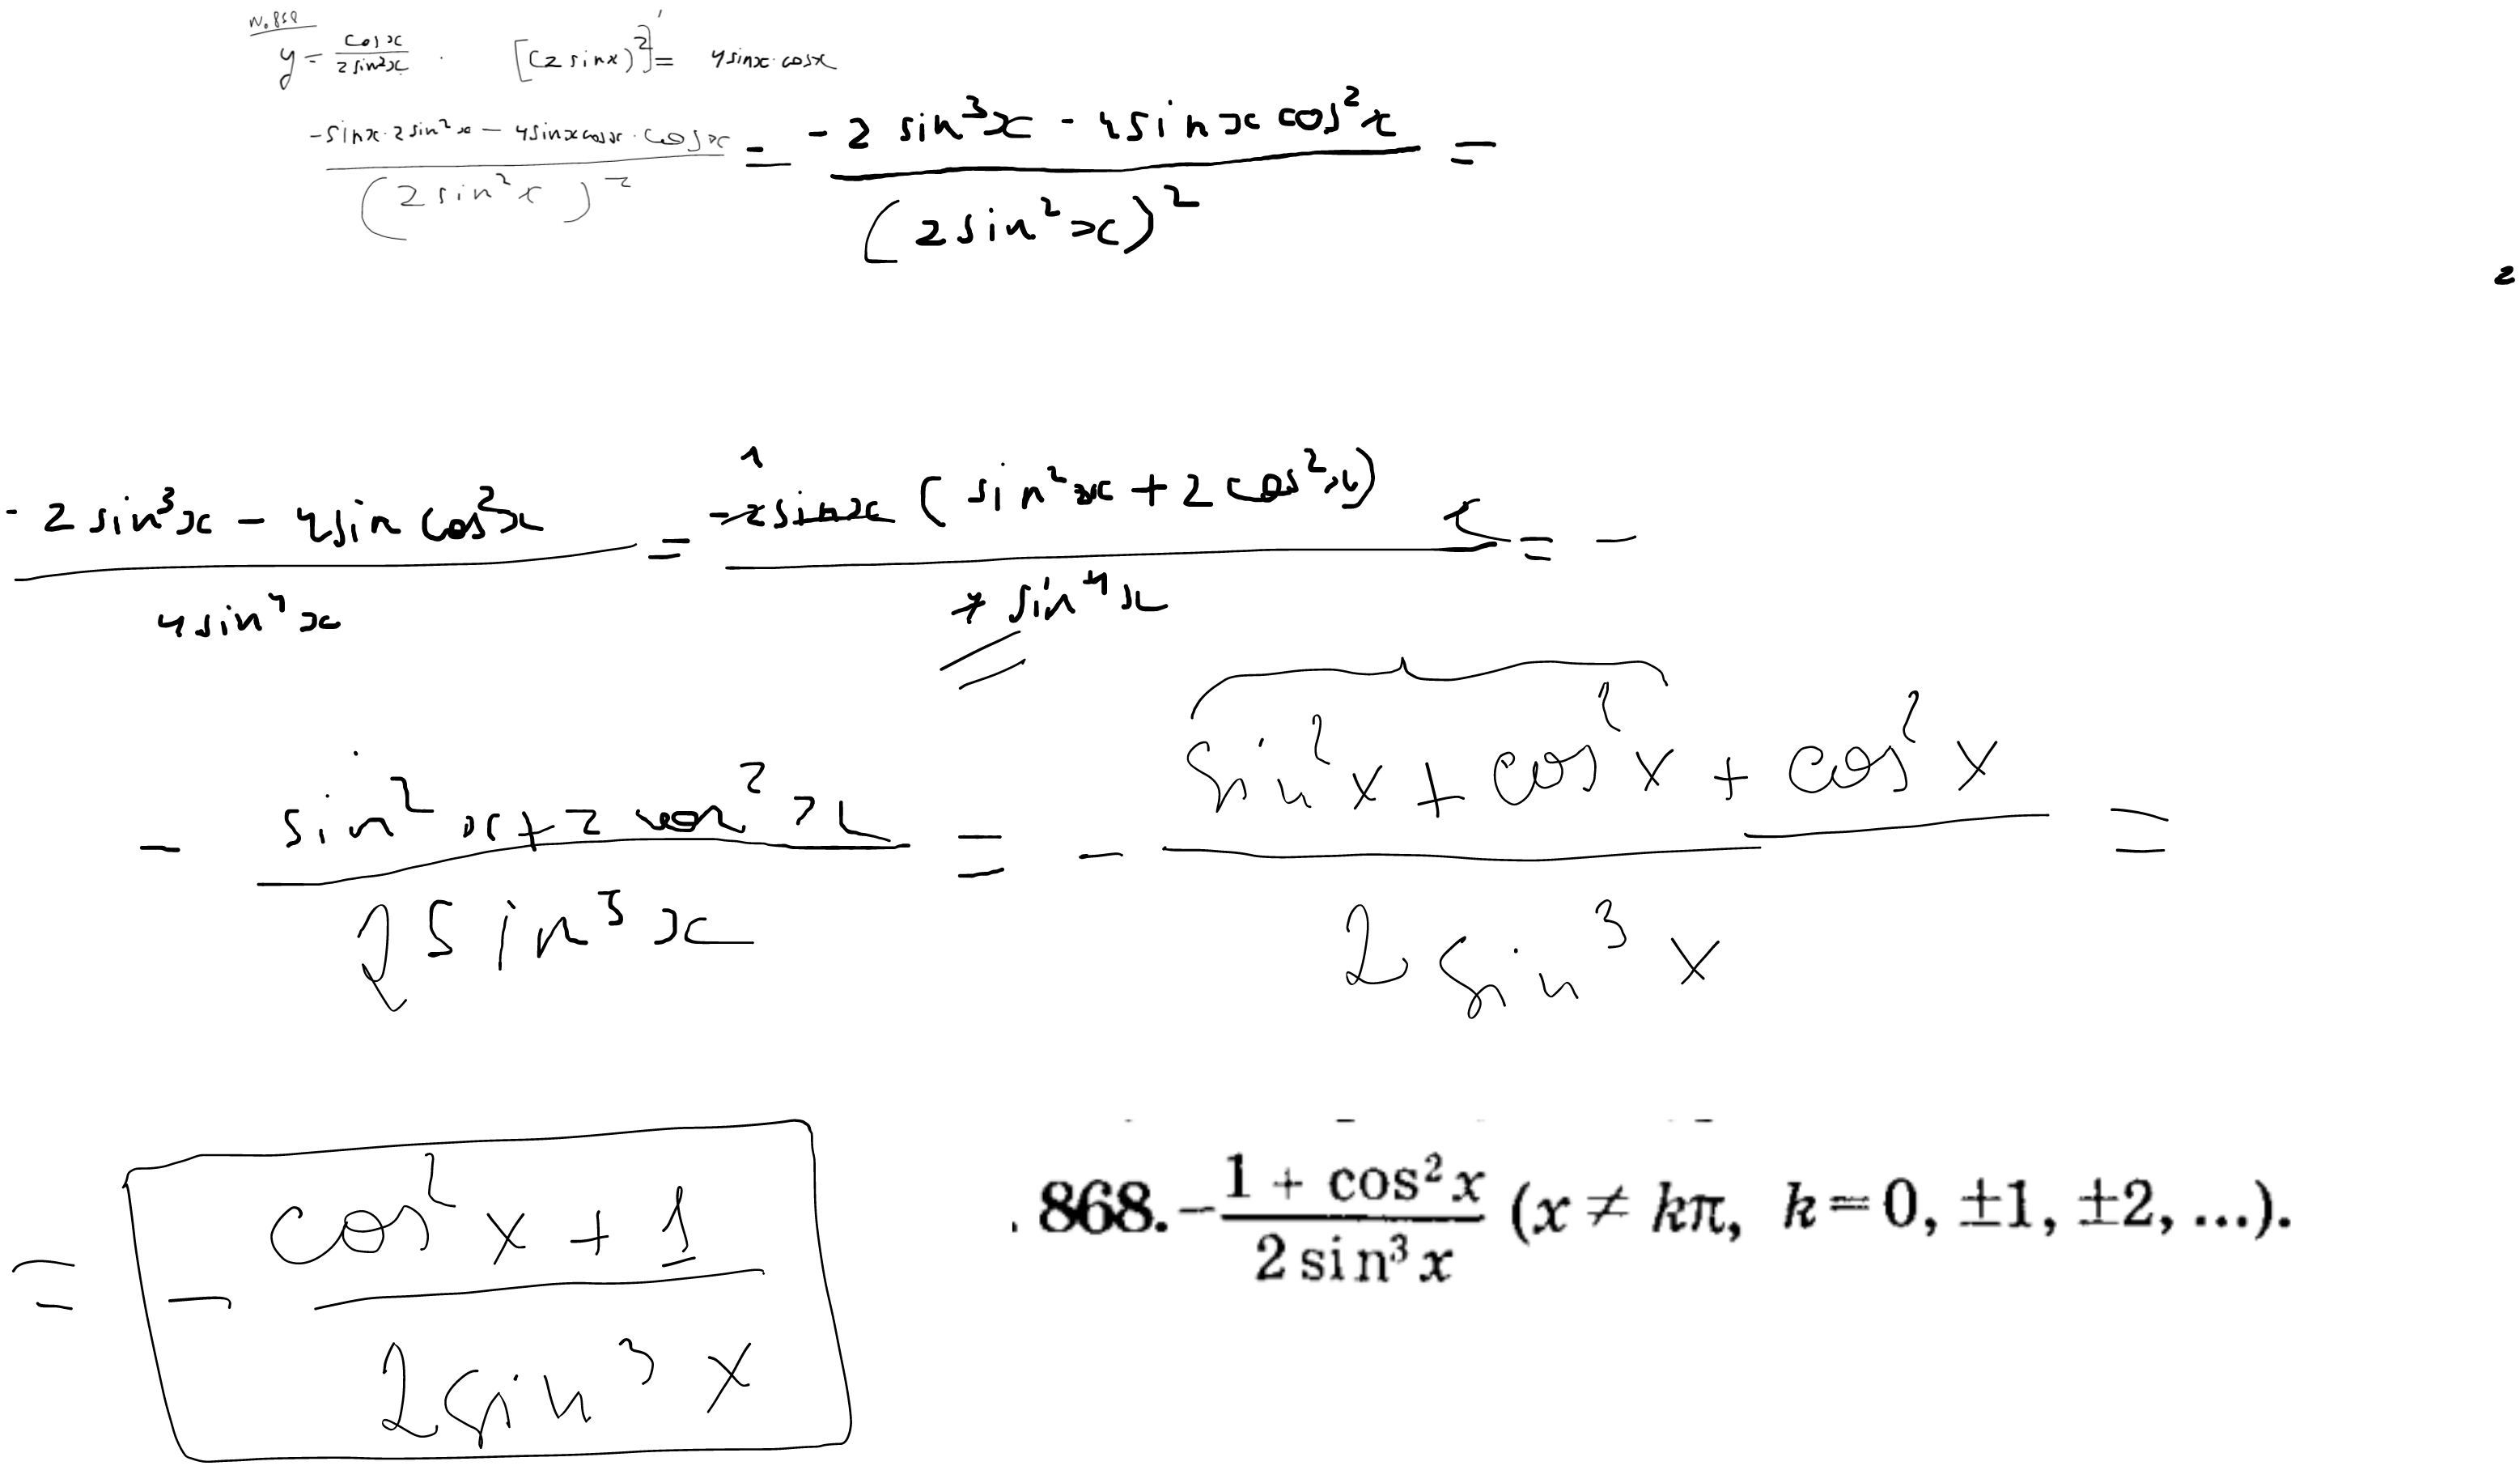 № 868
y = cosx / 2 sin²x . [(2 sinx)²]' = 4sinx·cosx
(-sinx·2sin²x - 4sinxcosx·cosx) / (2sin²x)² = (-2 sin³x - 4sinx cos²x) / (2sin²x)² =
2
(-2sin³x - 4sin cos²x) / 4sin⁴x = -2sinx (sin²x + 2cos²x) / 4 sin⁴x = -
1
- (sin²x + 2 cos²x) / 2sin³x = - (sin²x + cos²x + cos²x) / 2 sin³x =
= - (cos²x + 1) / 2sin³x
. 868. - (1 + cos²x) / 2 sin³x (x ≠ kπ, k = 0, ±1, ±2, ...).